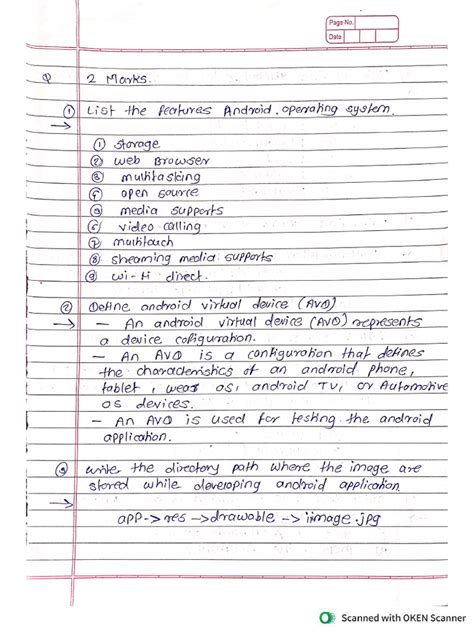 Page No.
Date
Q 2 Marks.
① List the features Android operating system.
→
① storage
② web Browser
③ multitasking
④ open source
⑤ media supports
⑥ video calling
⑦ multitouch
⑧ streaming media supports
⑨ wi-fi direct.
② Define android virtual device (AVD)
→ — An android virtual device (AVD) represents
a device cofiguration.
— An AVD is a configuration that defines
the characteristics of an android phone,
tablet, wear os, android TV, or Automotive
os devices.
— An AVD is used for testing the android
application.
③ write the directory path where the image are
stored while developing android application.
→ app->res->drawable->image.jpg
Scanned with OKEN Scanner